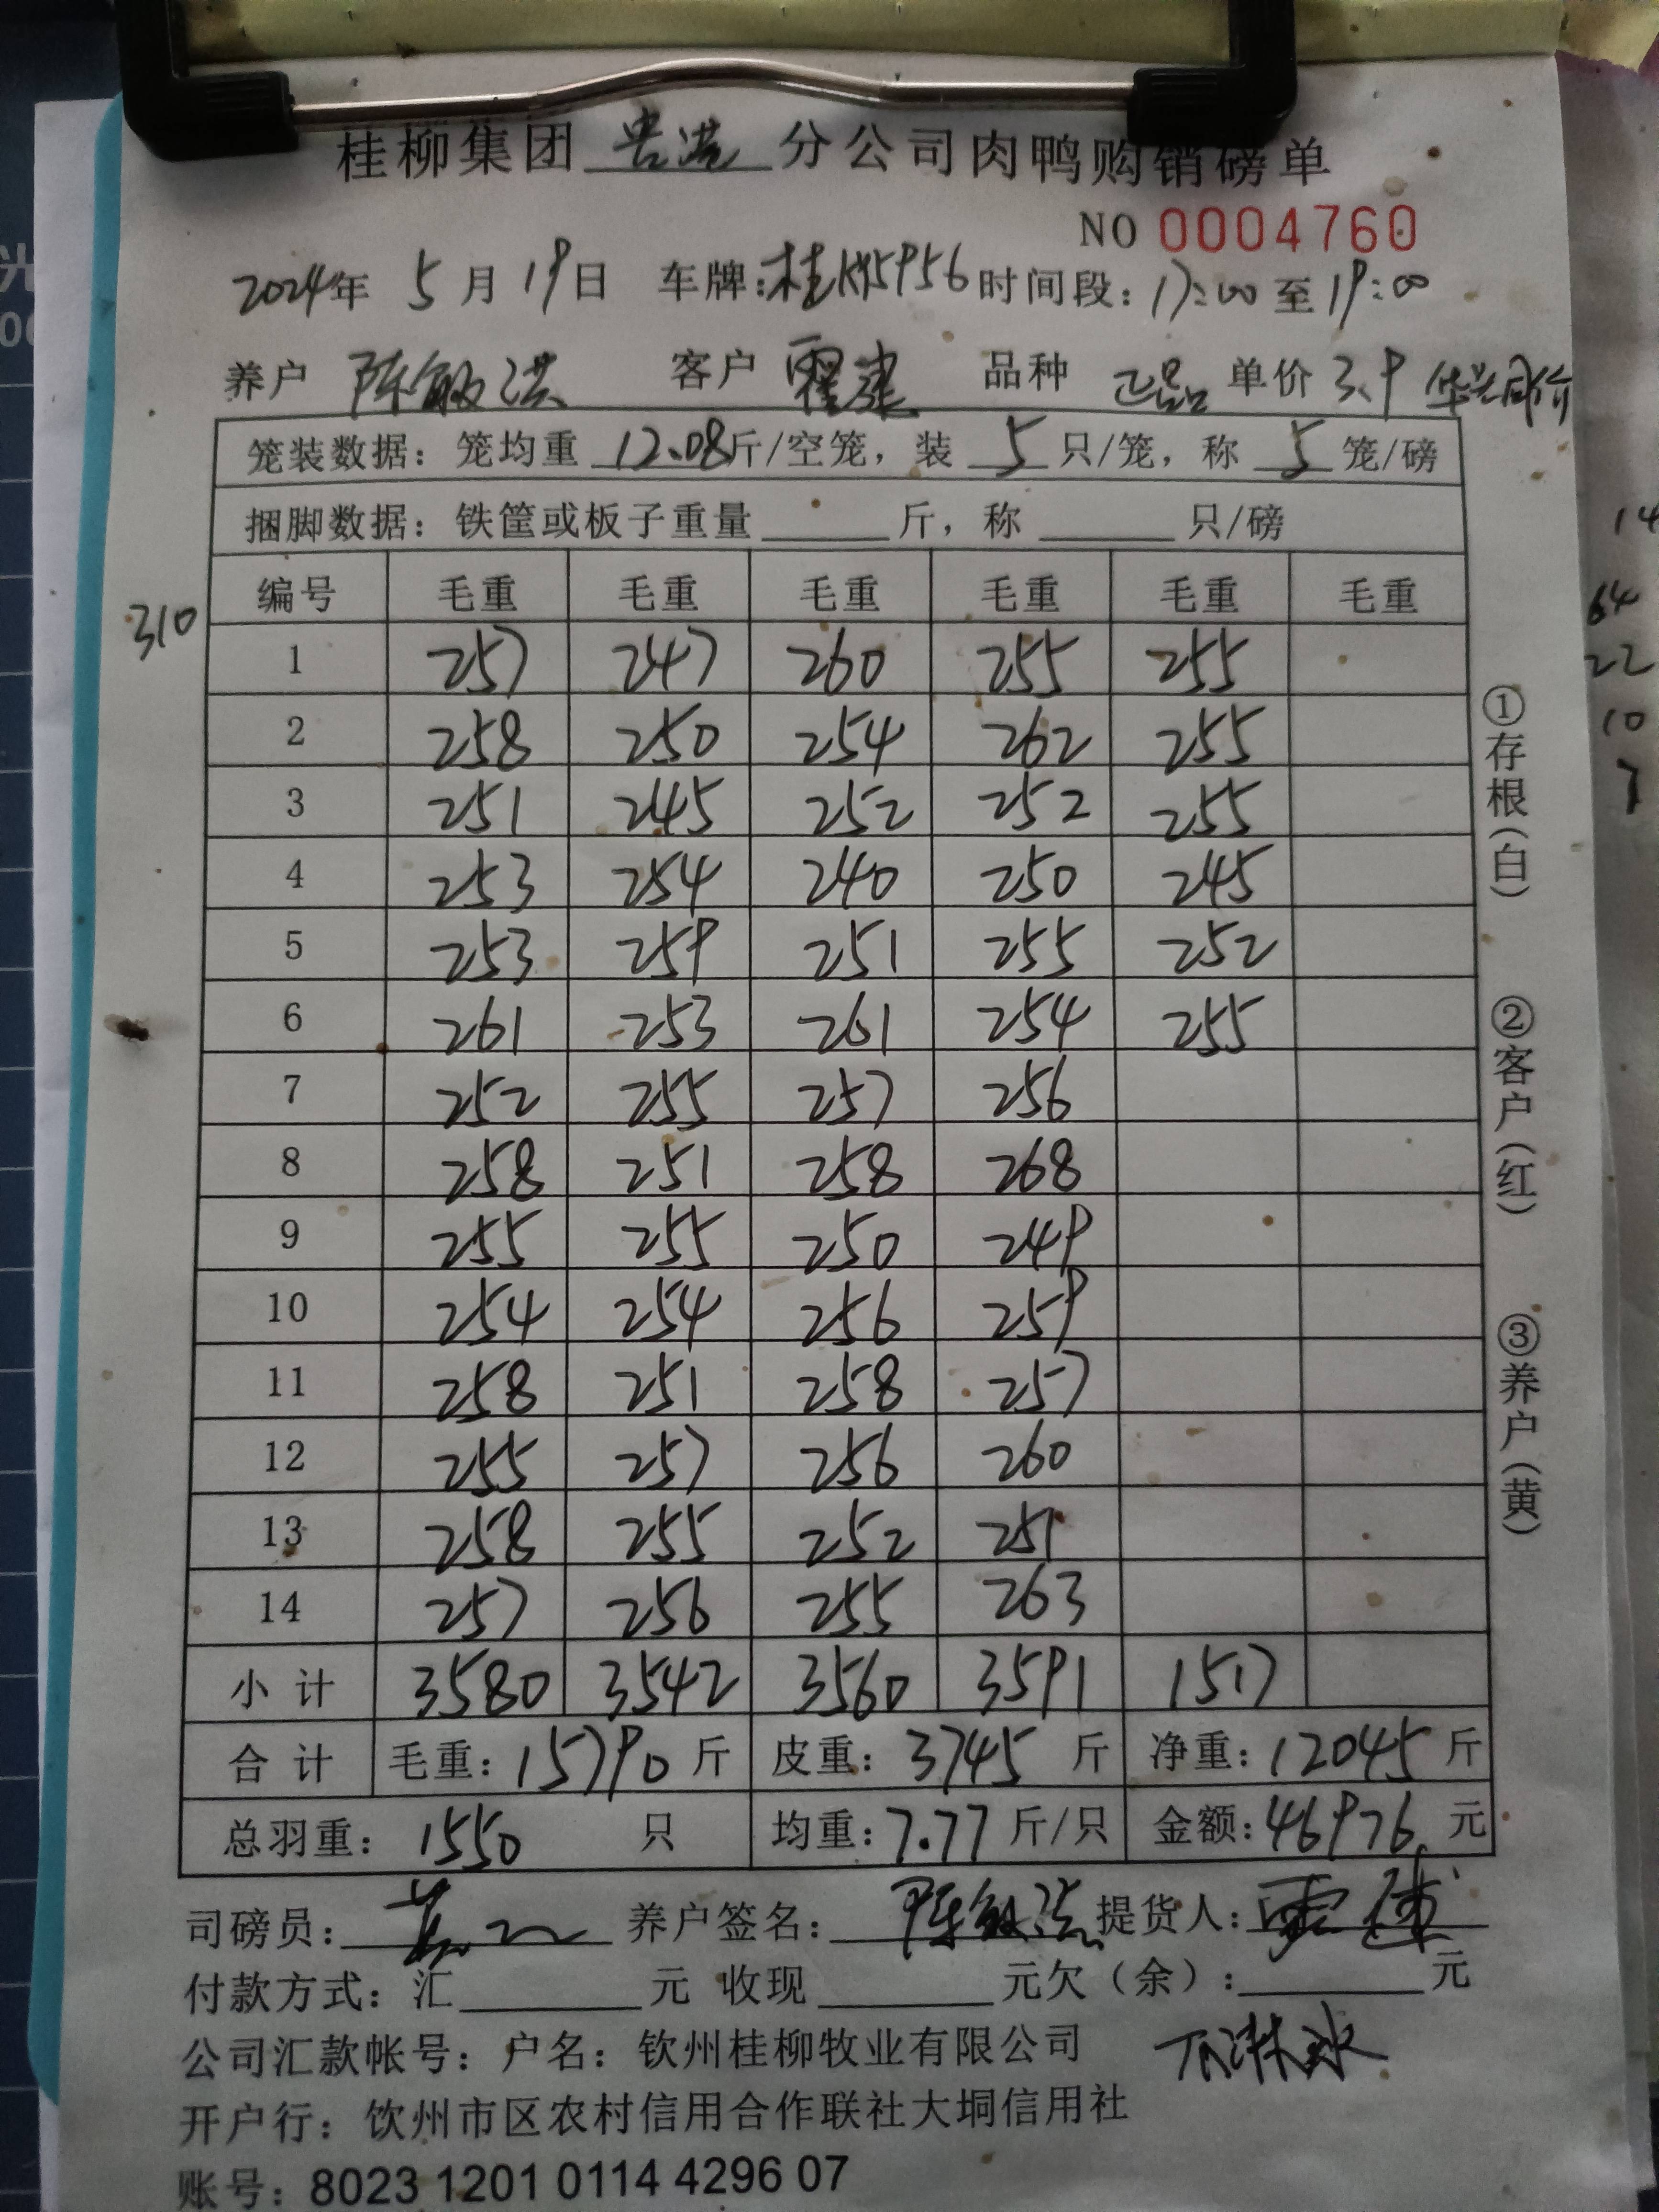 桂柳集团 贵港 分公司肉鸭购销磅单
NO 0004760
2024年 5月19日 车牌:桂 时间段: 17:00 至 19:00
养户 陈敏洪 客户 霍建 品种 正品 单价 3.9
笼装数据: 笼均重 12.08 斤/空笼, 装 5 只/笼, 称 5 笼/磅
捆脚数据: 铁筐或板子重量 斤, 称 只/磅
310
编号 毛重 毛重 毛重 毛重 毛重 毛重
1 257 247 260 255 255
2 258 250 254 262 255
3 251 245 252 252 255
4 253 254 240 250 245
5 253 259 251 255 252
6 261 253 261 254 255
7 252 255 257 256
8 258 251 258 268
9 255 255 250 249
10 254 254 256 259
11 258 251 258 257
12 255 257 256 260
13 258 255 252 251
14 257 256 255 263
小计 3580 3542 3560 3591 1517
合计 毛重: 15790 斤 皮重: 3745 斤 净重: 12045 斤
总羽重: 1550 只 均重: 7.77 斤/只 金额: 46976 元
司磅员: 养户签名: 陈敏洪 提货人:
付款方式: 汇 元 收现 元欠(余): 元
公司汇款帐号: 户名: 钦州桂柳牧业有限公司
开户行: 钦州市区农村信用合作联社大垌信用社
账号: 8023 1201 0114 4296 07
①存根(白)
②客户(红)
③养户(黄)
14
64
22
10